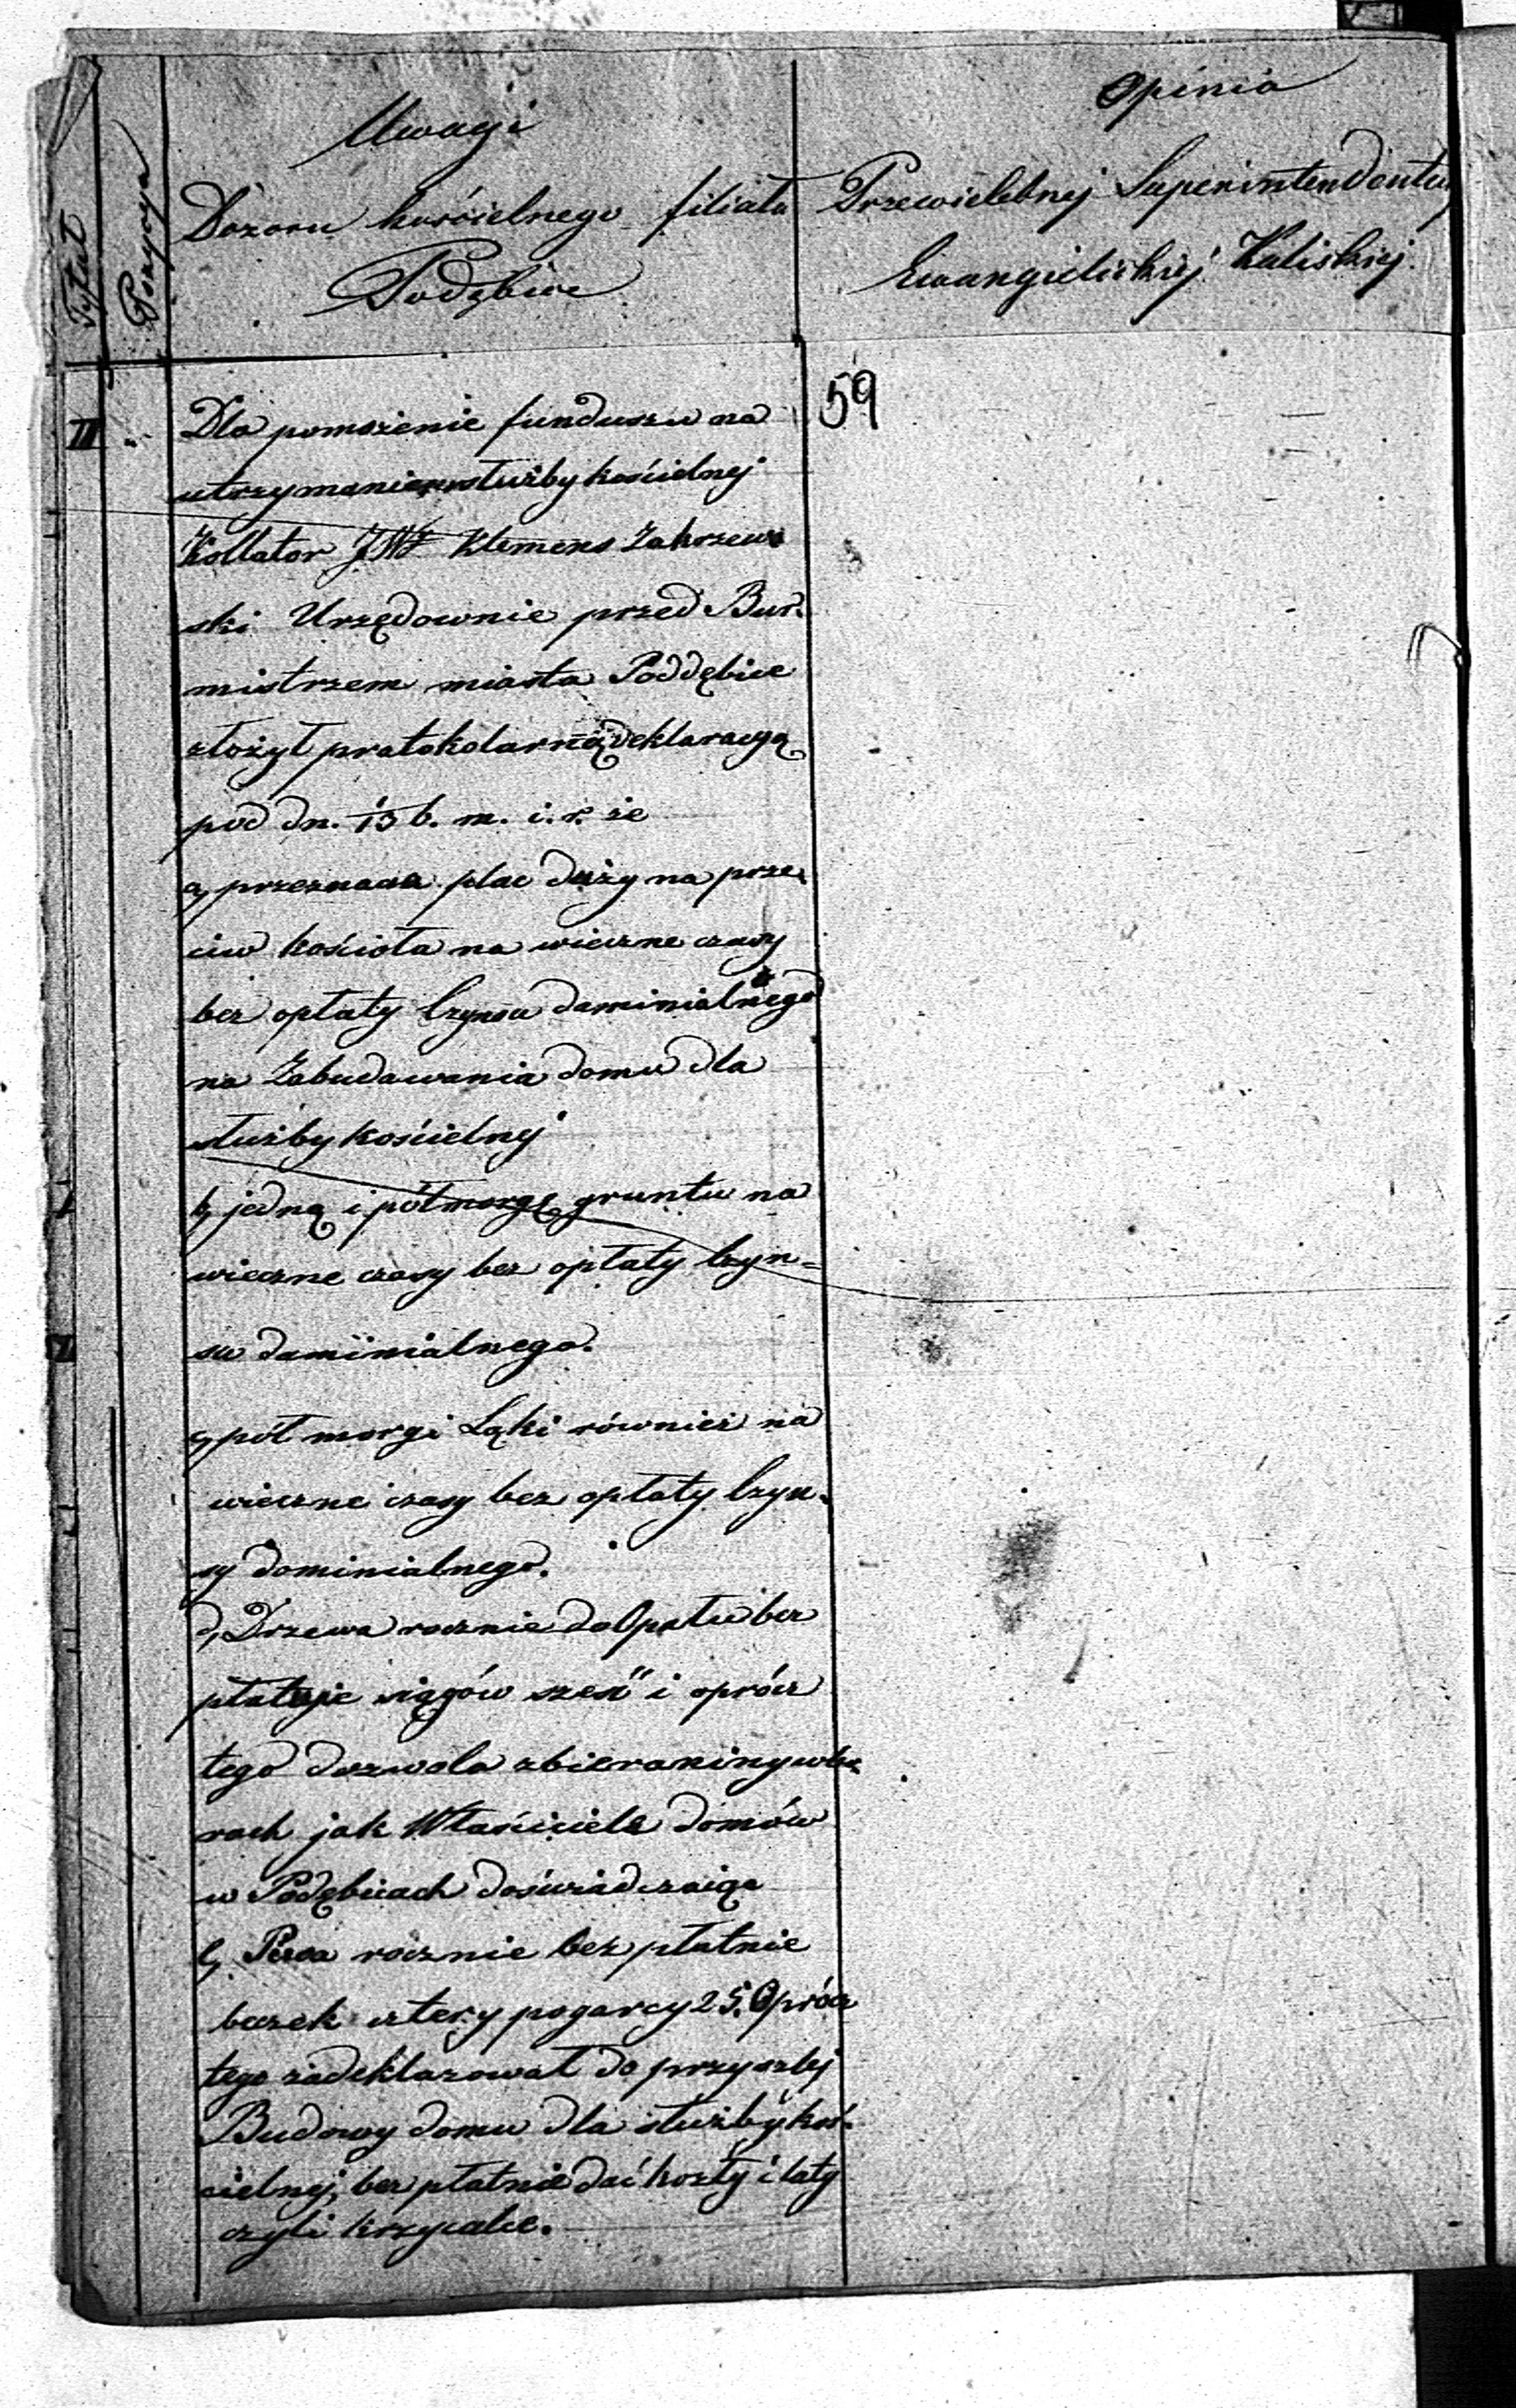 Tytuł
Pozycya
Uwagi
Dozoru kościelnego filiału
Podębice
Opinia
Przewielebnej Superintendentury
Ewangielickiej Kaliskiej.
II
59
Dla pomożenie funduszu na
utrzymanie służby kościelnej
Kollator JWz Klemens Zakrzew
ski Urzędownie przed Bur.
mistrzem miasta Poddębice
złożył protokolarną deklaracyą
pod dn. 13 b. m. i. r. że
a, przeznacza plac duży na prze,
ciw kościoła na wieczne czasy
bez opłaty Czynszu dominialnego
na Zabudowania domu dla
służby kościelnej
b, jedną i półmorgę gruntu na
wieczne czasy bez opłaty Czyn=
szu dominialnego.
c, pół morgi Łąki również na
wieczne czasy bez opłaty Czyn.
szy dominialnego.
d, Drzewa rocznie do Opału bez
płatnie siągów sześć i oprócz
tego dozwola zbieraniny w bo,
rach jak Właściciele domów
w Podębicach doświadczaiąc
e, Piwa rocznie bez płatnie
beczek cztery po garcy 25. Oprócz
tego zadeklarował do przyszłej
Budowy domu dla służby koś.
cielnej, bez płatnie dać kozły i łaty
czyli krzycalce.